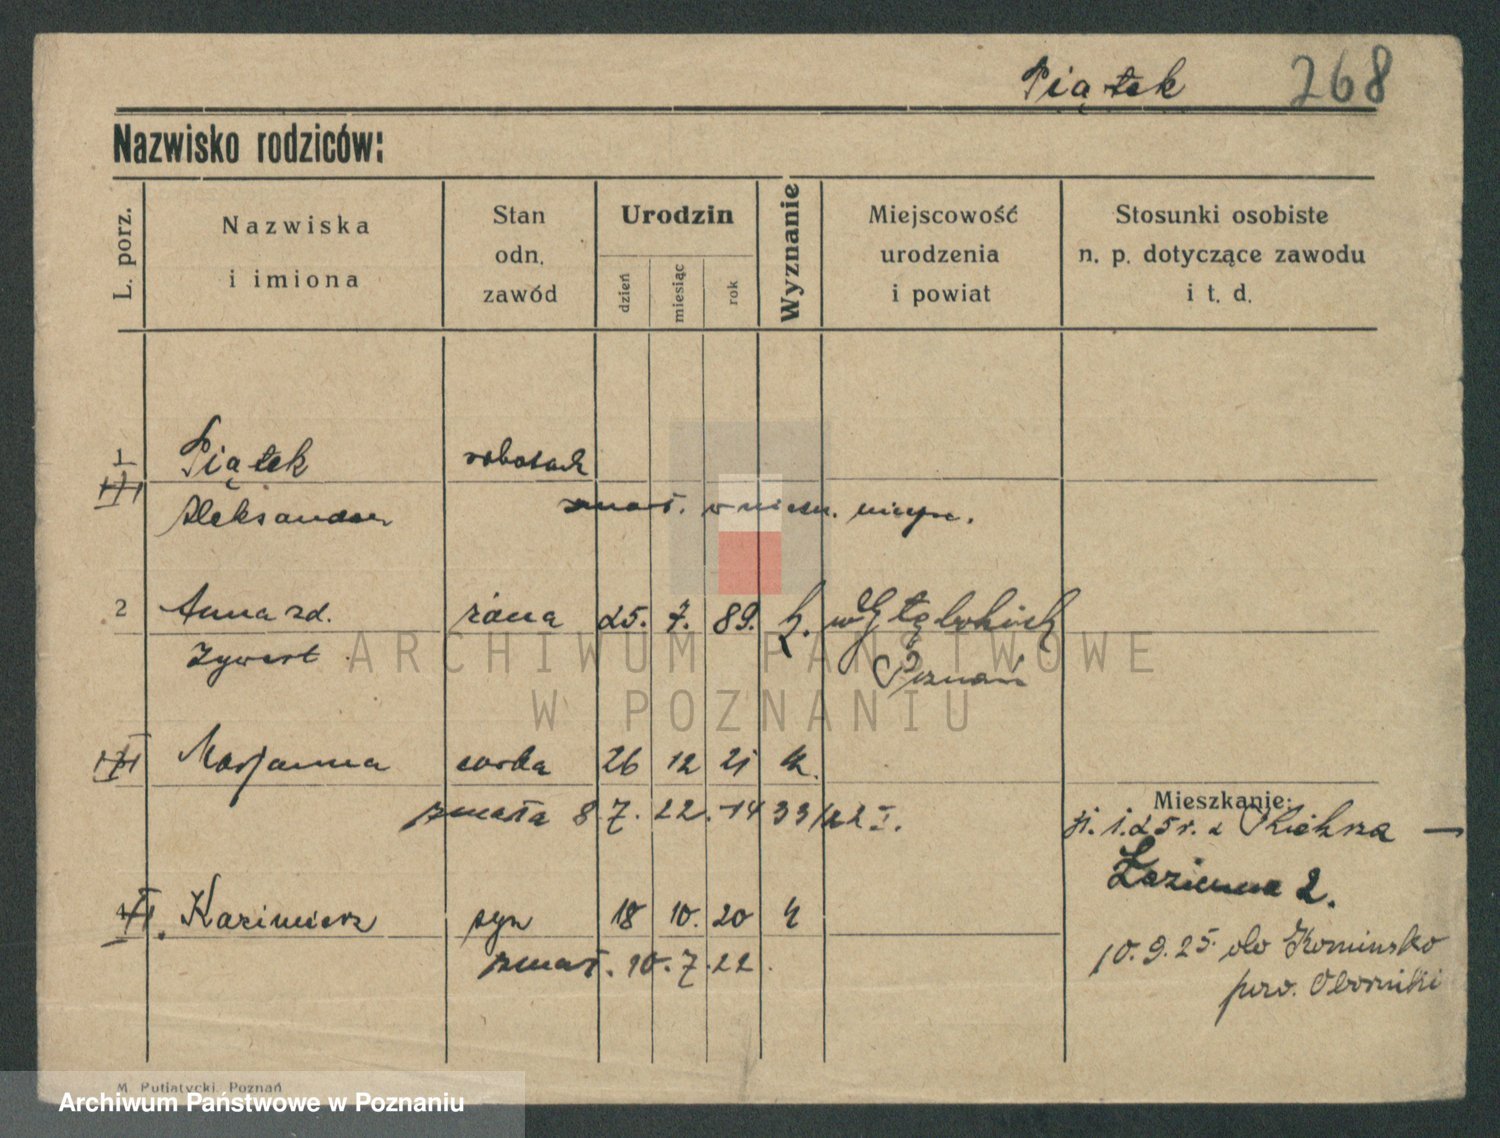 Piątek 268
Nazwisko rodziców:
L. porz.
Nazwiska
i imiona
Stan
odn.
zawód
Urodzin
dzień
miesiąc
rok
Wyznanie
Miejscowość
urodzenia
i powiat
Stosunki osobiste
n. p. dotyczące zawodu
i t. d.
1 Piątek
Aleksander zmarł.
2 Anna zd. żona 25. 7. 89. k.
Zywert Poznań
Marjanna córka 26 12 21 k.
zmarła 8 7. 22. 1433/22 I.
Mieszkanie:
Kiekrza —
Łazienna 2.
Kazimierz syn 18 10. 20 k
zmarł. 10. 7. 22.
10. 9. 25. do
pow. Oborniki
ARCHIWUM PAŃSTWOWE
W POZNANIU
M. Putiatycki, Poznań
Archiwum Państwowe w Poznaniu